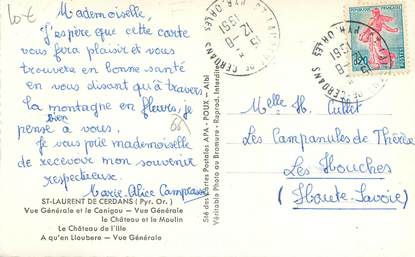 10€
Mademoiselle,
J'espère que cette carte
vous fera plaisir et vous
trouvera en bonne santé
en vous disant qu'à travers
la montagne en fleurs, je
pense bien à vous.
Je vous prie mademoiselle
de recevoir mon souvenir
respectueuse.
Marie-Alice
ST-LAURENT DE CERDANS (Pyr. Or.)
Vue Générale et le Canigou — Vue Générale
le Château et le Moulin
Le Château de l'Ille
A qu'en Lloubere — Vue Générale
Sté des Cartes Postales APA - POUX - Albi
Véritable Photo au Bromure - Reprod. Interdite
PYR.-ORLES
15 H
12 -8
1961
PYR.-ORLES
15 H
-8
1961
0,20
Melle H.
Les Campanules de Thérèse
Les Houches
(Haute-Savoie)